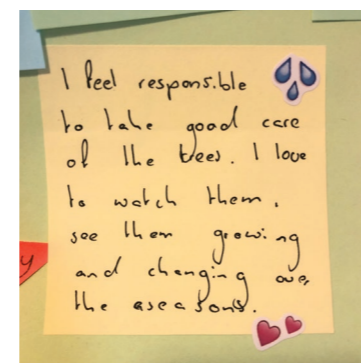 I feel responsible
to take good care
of the trees. I love
to watch them,
see them growing
and changing over
the aseasons.
y